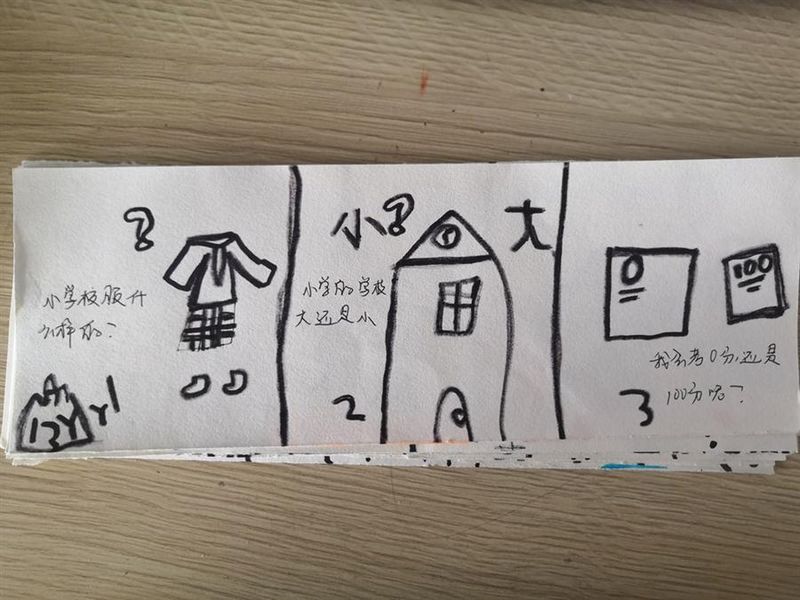 ?
小学校服什
么样的?
1
小?
大
小学的学校
大还是小
2
0
100
我会考0分还是
100分呢?
3